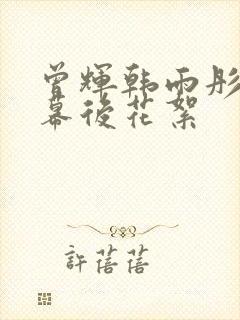 曾輝韩雨彤
幕後花絮
許蓓蓓